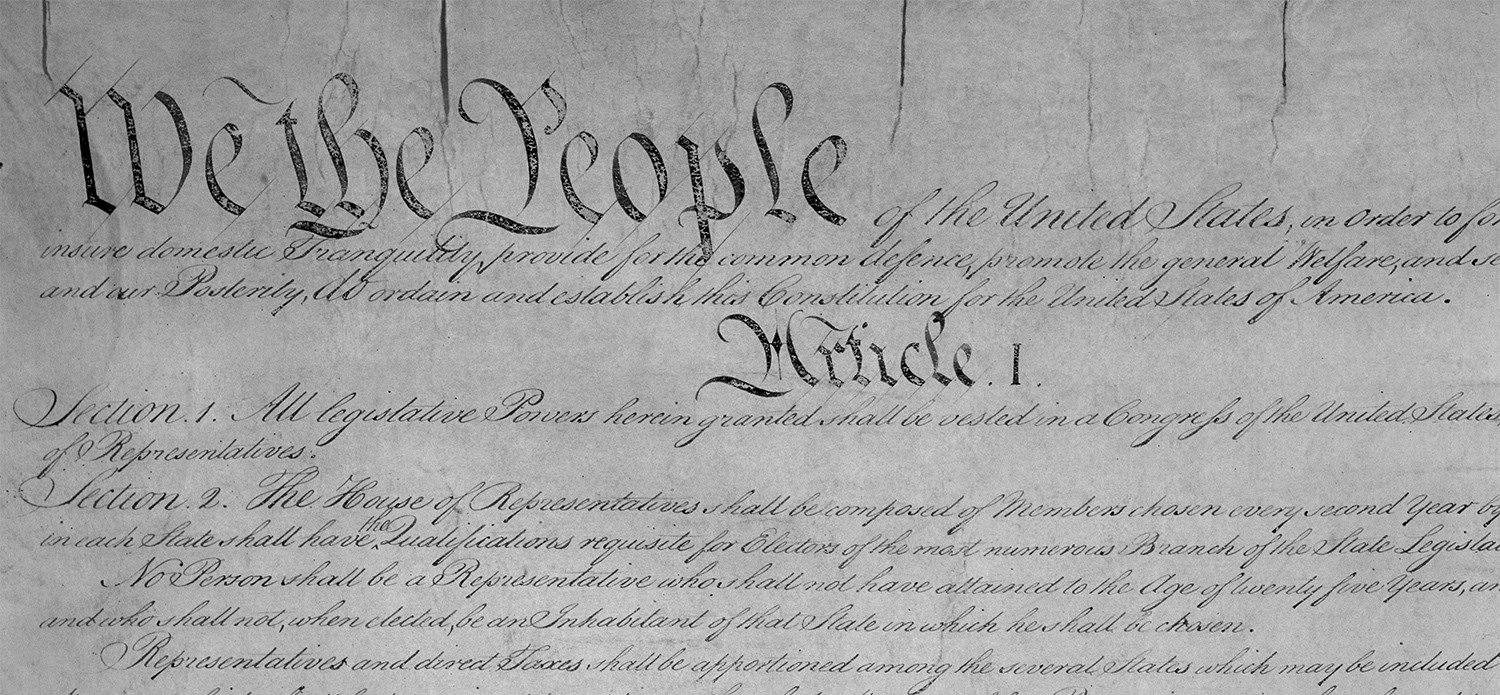 We the People of the United States, in Order to for
insure domestic Tranquility, provide for the common defence, promote the general Welfare, and se
and our Posterity, do ordain and establish this Constitution for the United States of America.
Article. I.
Section. 1. All legislative Powers herein granted shall be vested in a Congress of the United States,
of Representatives.
Section. 2. The House of Representatives shall be composed of Members chosen every second Year by
in each State shall have the Qualifications requisite for Electors of the most numerous Branch of the State Legisla
No Person shall be a Representative who shall not have attained to the Age of twenty five Years, an
and who shall not, when elected, be an Inhabitant of that State in which he shall be chosen.
Representatives and direct Taxes shall be apportioned among the several States which may be included